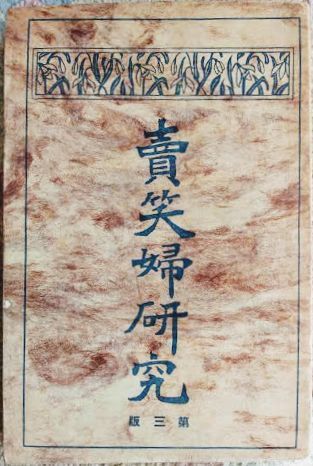 賣笑婦研究
第三版